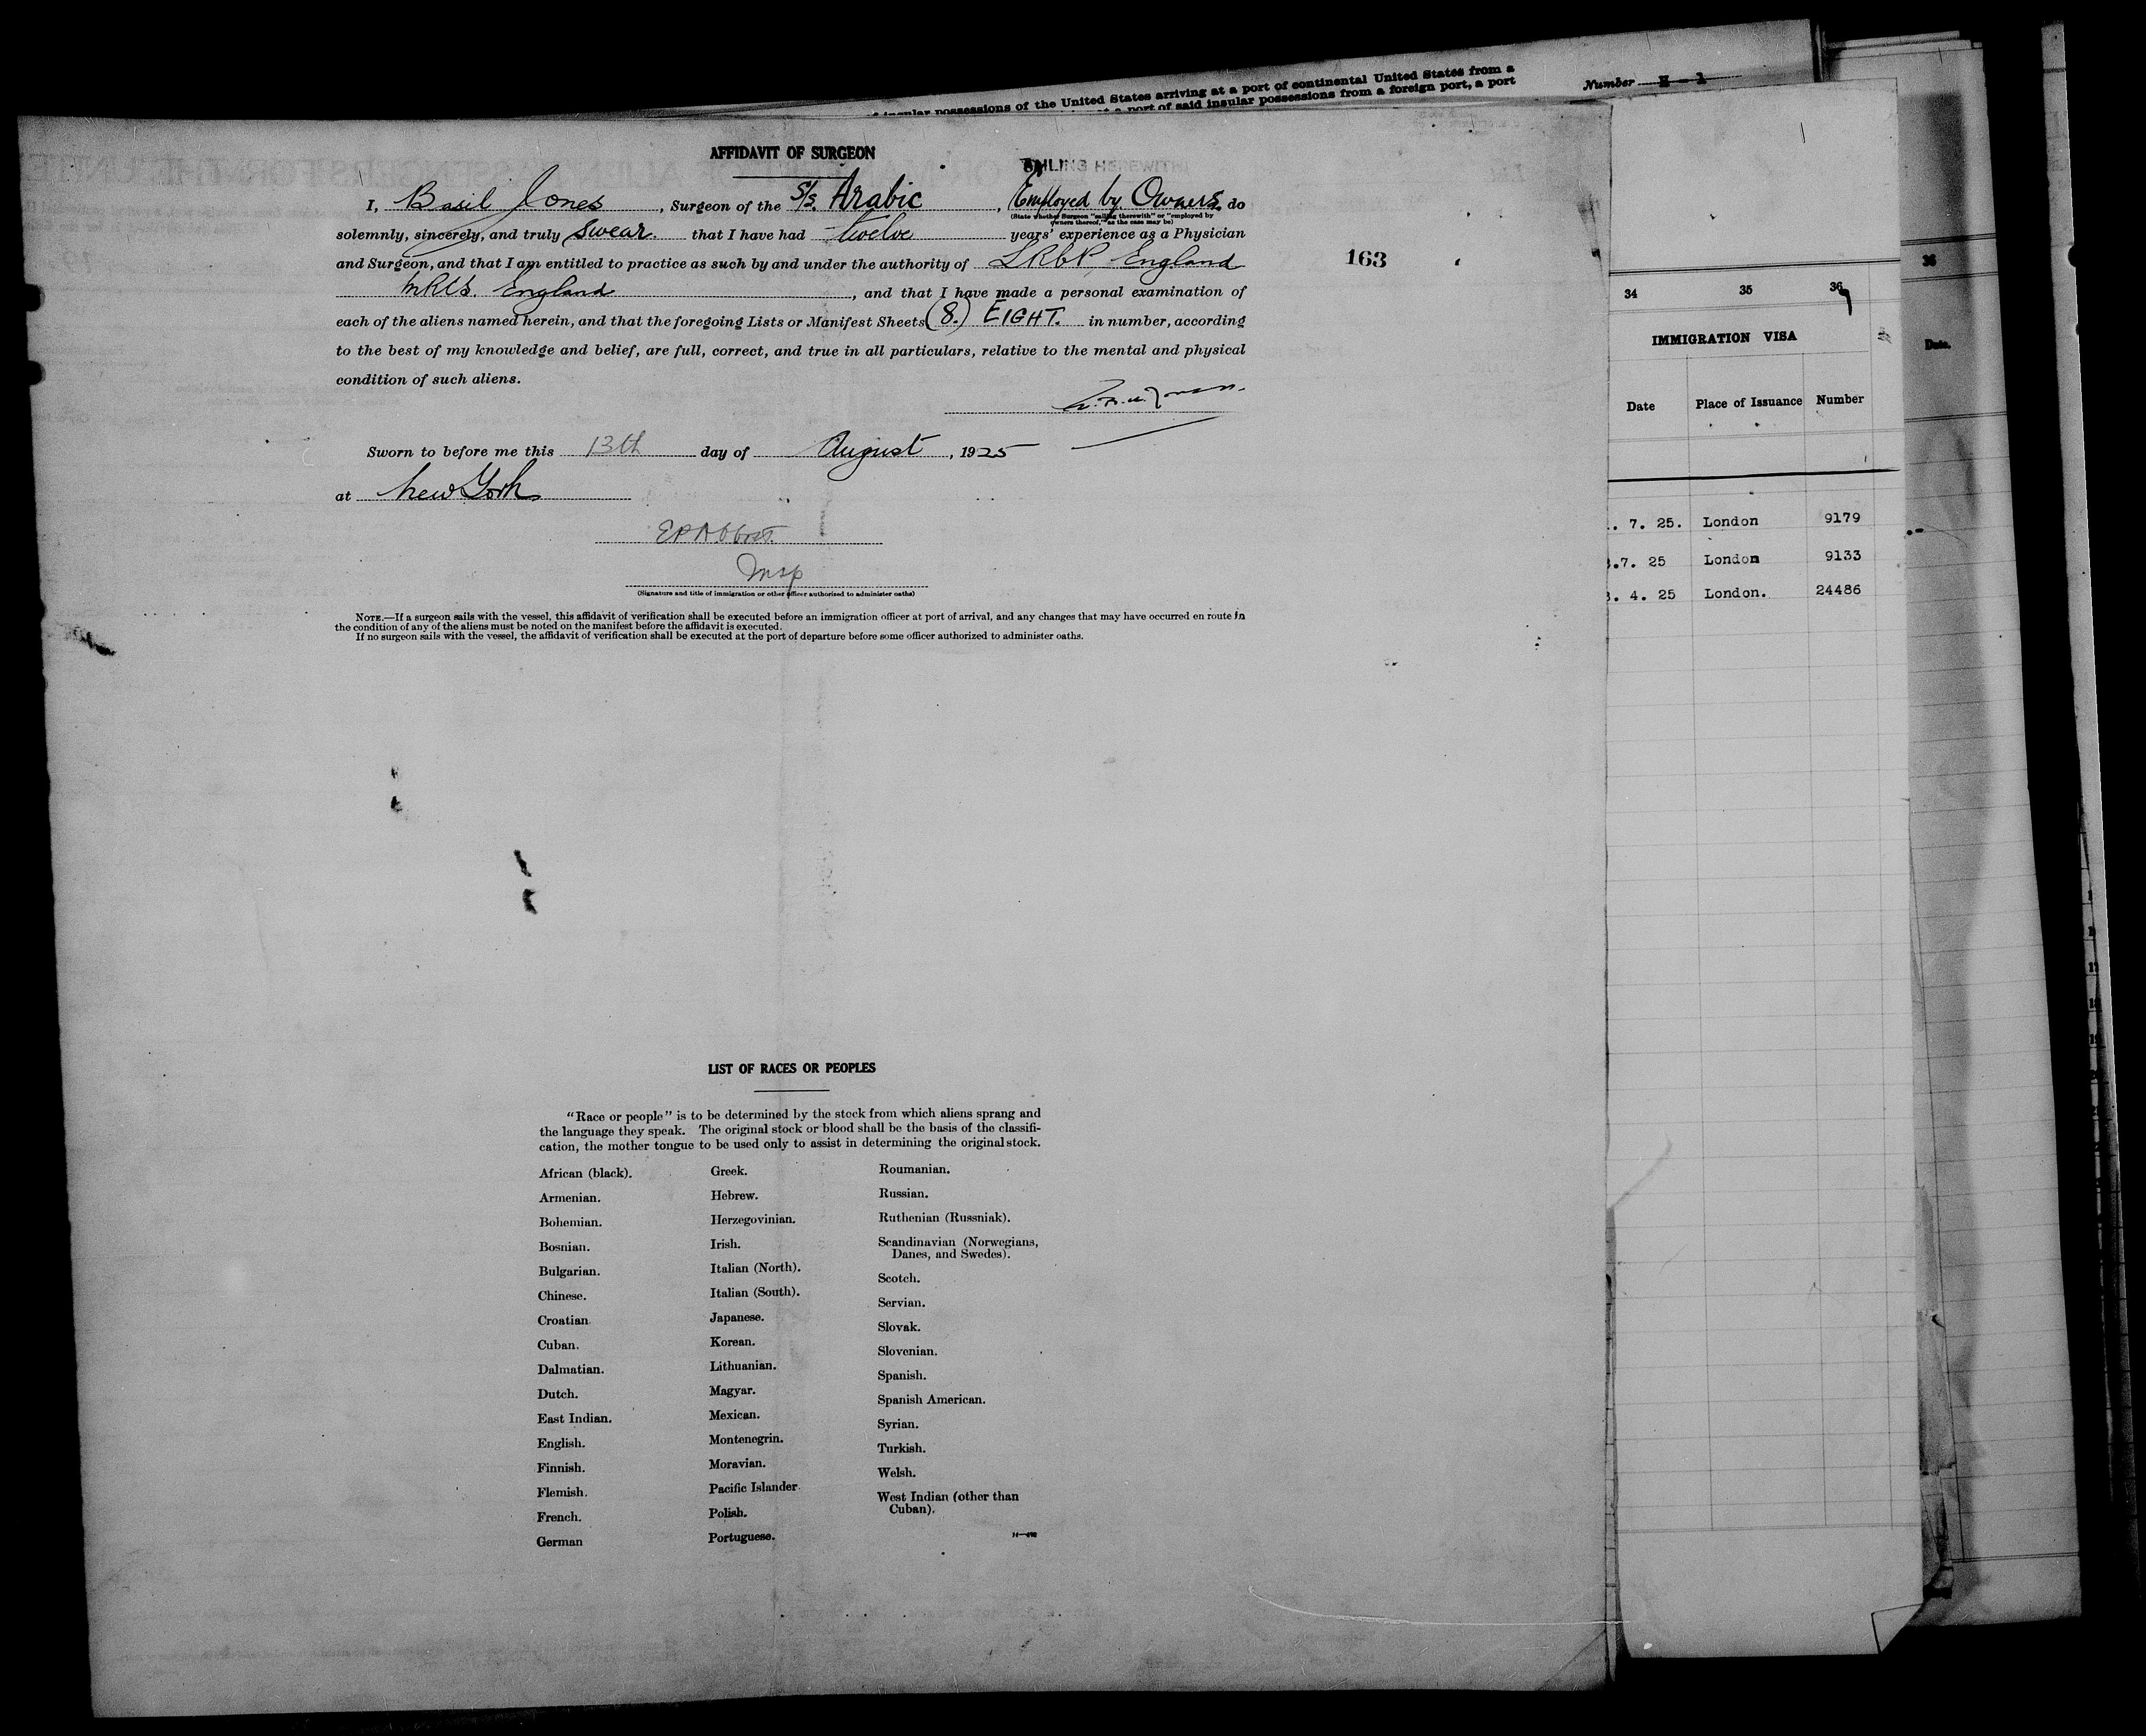 insular possessions of the United States arriving at a port of continental United States from a
port of said insular possessions from a foreign port, a port
Number H - 1
AFFIDAVIT OF SURGEON
SAILING HEREWITH
I, Basil Jones, Surgeon of the S/S. Arabic, Employed by Owners, do
(State whether Surgeon "sailing therewith" or "employed by
owners thereof," as the case may be)
solemnly, sincerely, and truly Swear. that I have had twelve years' experience as a Physician
and Surgeon, and that I am entitled to practice as such by and under the authority of LRCP England
MRCS. England, and that I have made a personal examination of
each of the aliens named herein, and that the foregoing Lists or Manifest Sheets (8.) EIGHT. in number, according
to the best of my knowledge and belief, are full, correct, and true in all particulars, relative to the mental and physical
condition of such aliens.
Sworn to before me this 13th day of August, 1925
at New York
Insp
(Signature and title of immigration or other officer authorized to administer oaths)
NOTE.—If a surgeon sails with the vessel, this affidavit of verification shall be executed before an immigration officer at port of arrival, and any changes that may have occurred en route in
the condition of any of the aliens must be noted on the manifest before the affidavit is executed.
If no surgeon sails with the vessel, the affidavit of verification shall be executed at the port of departure before some officer authorized to administer oaths.
163
LIST OF RACES OR PEOPLES
"Race or people" is to be determined by the stock from which aliens sprang and
the language they speak. The original stock or blood shall be the basis of the classifi-
cation, the mother tongue to be used only to assist in determining the original stock.
African (black).
Armenian.
Bohemian.
Bosnian.
Bulgarian.
Chinese.
Croatian
Cuban.
Dalmatian.
Dutch.
East Indian.
English.
Finnish.
Flemish.
French.
German
Greek.
Hebrew.
Herzegovinian.
Irish.
Italian (North).
Italian (South).
Japanese.
Korean.
Lithuanian.
Magyar.
Mexican.
Montenegrin.
Moravian.
Pacific Islander
Polish.
Portuguese.
Roumanian.
Russian.
Ruthenian (Russniak).
Scandinavian (Norwegians,
Danes, and Swedes).
Scotch.
Servian.
Slovak.
Slovenian.
Spanish.
Spanish American.
Syrian.
Turkish.
Welsh.
West Indian (other than
Cuban).
34 35 36
IMMIGRATION VISA
Date Place of Issuance Number
. 7. 25. London 9179
.7. 25 London 9133
. 4. 25 London. 24486
36
Date.